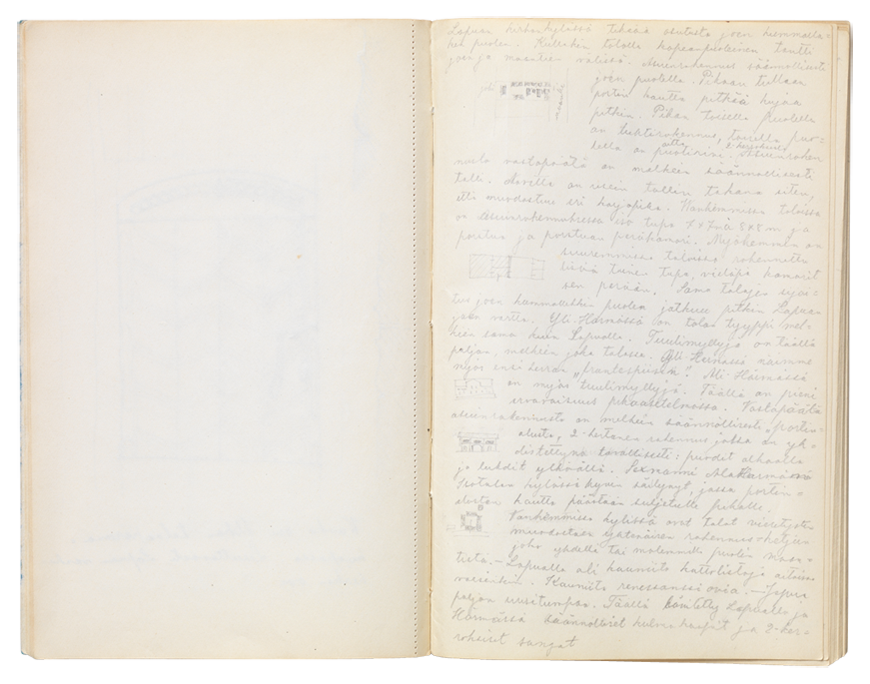 Lapuan kirkonkylässä tiheää asutusta joen kummalla-
kin puolen. Kullakin talolla kapea puoleinen tontti
joen ja maantien välissä. Asuinrakennus säännöllisesti
joen puolella. Pihaan tullaan
portin kautta pitkää kujaa
pitkin. Pihan toisella puolella
on luhtirakennus, toisella puo-
lella on
nusta vastapäätä on melkein säännöllisesti
talli. Navetta on usein tallin takana siten,
että muodostuu eri karjapiha. Vanhemmissa taloissa
on asuinrakennuksessa iso tupa 7x7 à 8x8 m ja
porstua ja porstuan peräkamari. Myöhemmin on
suuremmissa taloissa rakennettu
toinen tupa, vieläpä kamarit
sen perään. Sama talojen sijoi-
tus joen kummallakin puolen jatkuu pitkin Lapuan
joen vartta. Yli-Härmässä on talon tyyppi mel-
kein sama kuin Lapualla. Tuulimyllyjä on täällä
paljon, melkein joka talossa. Yli-Härmässä näimme
myös ensi kerran „frontespiisin". Ali-Härmässä
on myös tuulimyllyjä. Täällä on pieni
eroavaisuus pihaasetelmassa. Vastapäätä
asuinrakennusta on melkein säännöllisesti „portin-
alusta", 2-kertanen rakennus jossa on yh-
distettynä tavallisesti: puodit alhaalla
ja luhdit ylhäällä. Alahärmässä
kylässä hyvin säilynyt, jossa portin-
alustan kautta päästään suljetulle pihalle.
Vanhemmissa kylissä ovat talot vieretysten
muodostaen yhtenäisen rakennus-ketjun
joko yhdellä tai molemmilla puolin maan-
tietä. – Lapualla oli kauniita kattolistoja aitoissa
varsinkin. Kauniita renessanssi ovia. –
paljon Täällä Lapualla ja
Härmässä säännölliset kulmakaapit ja 2-ker-
rokseiset sängyt